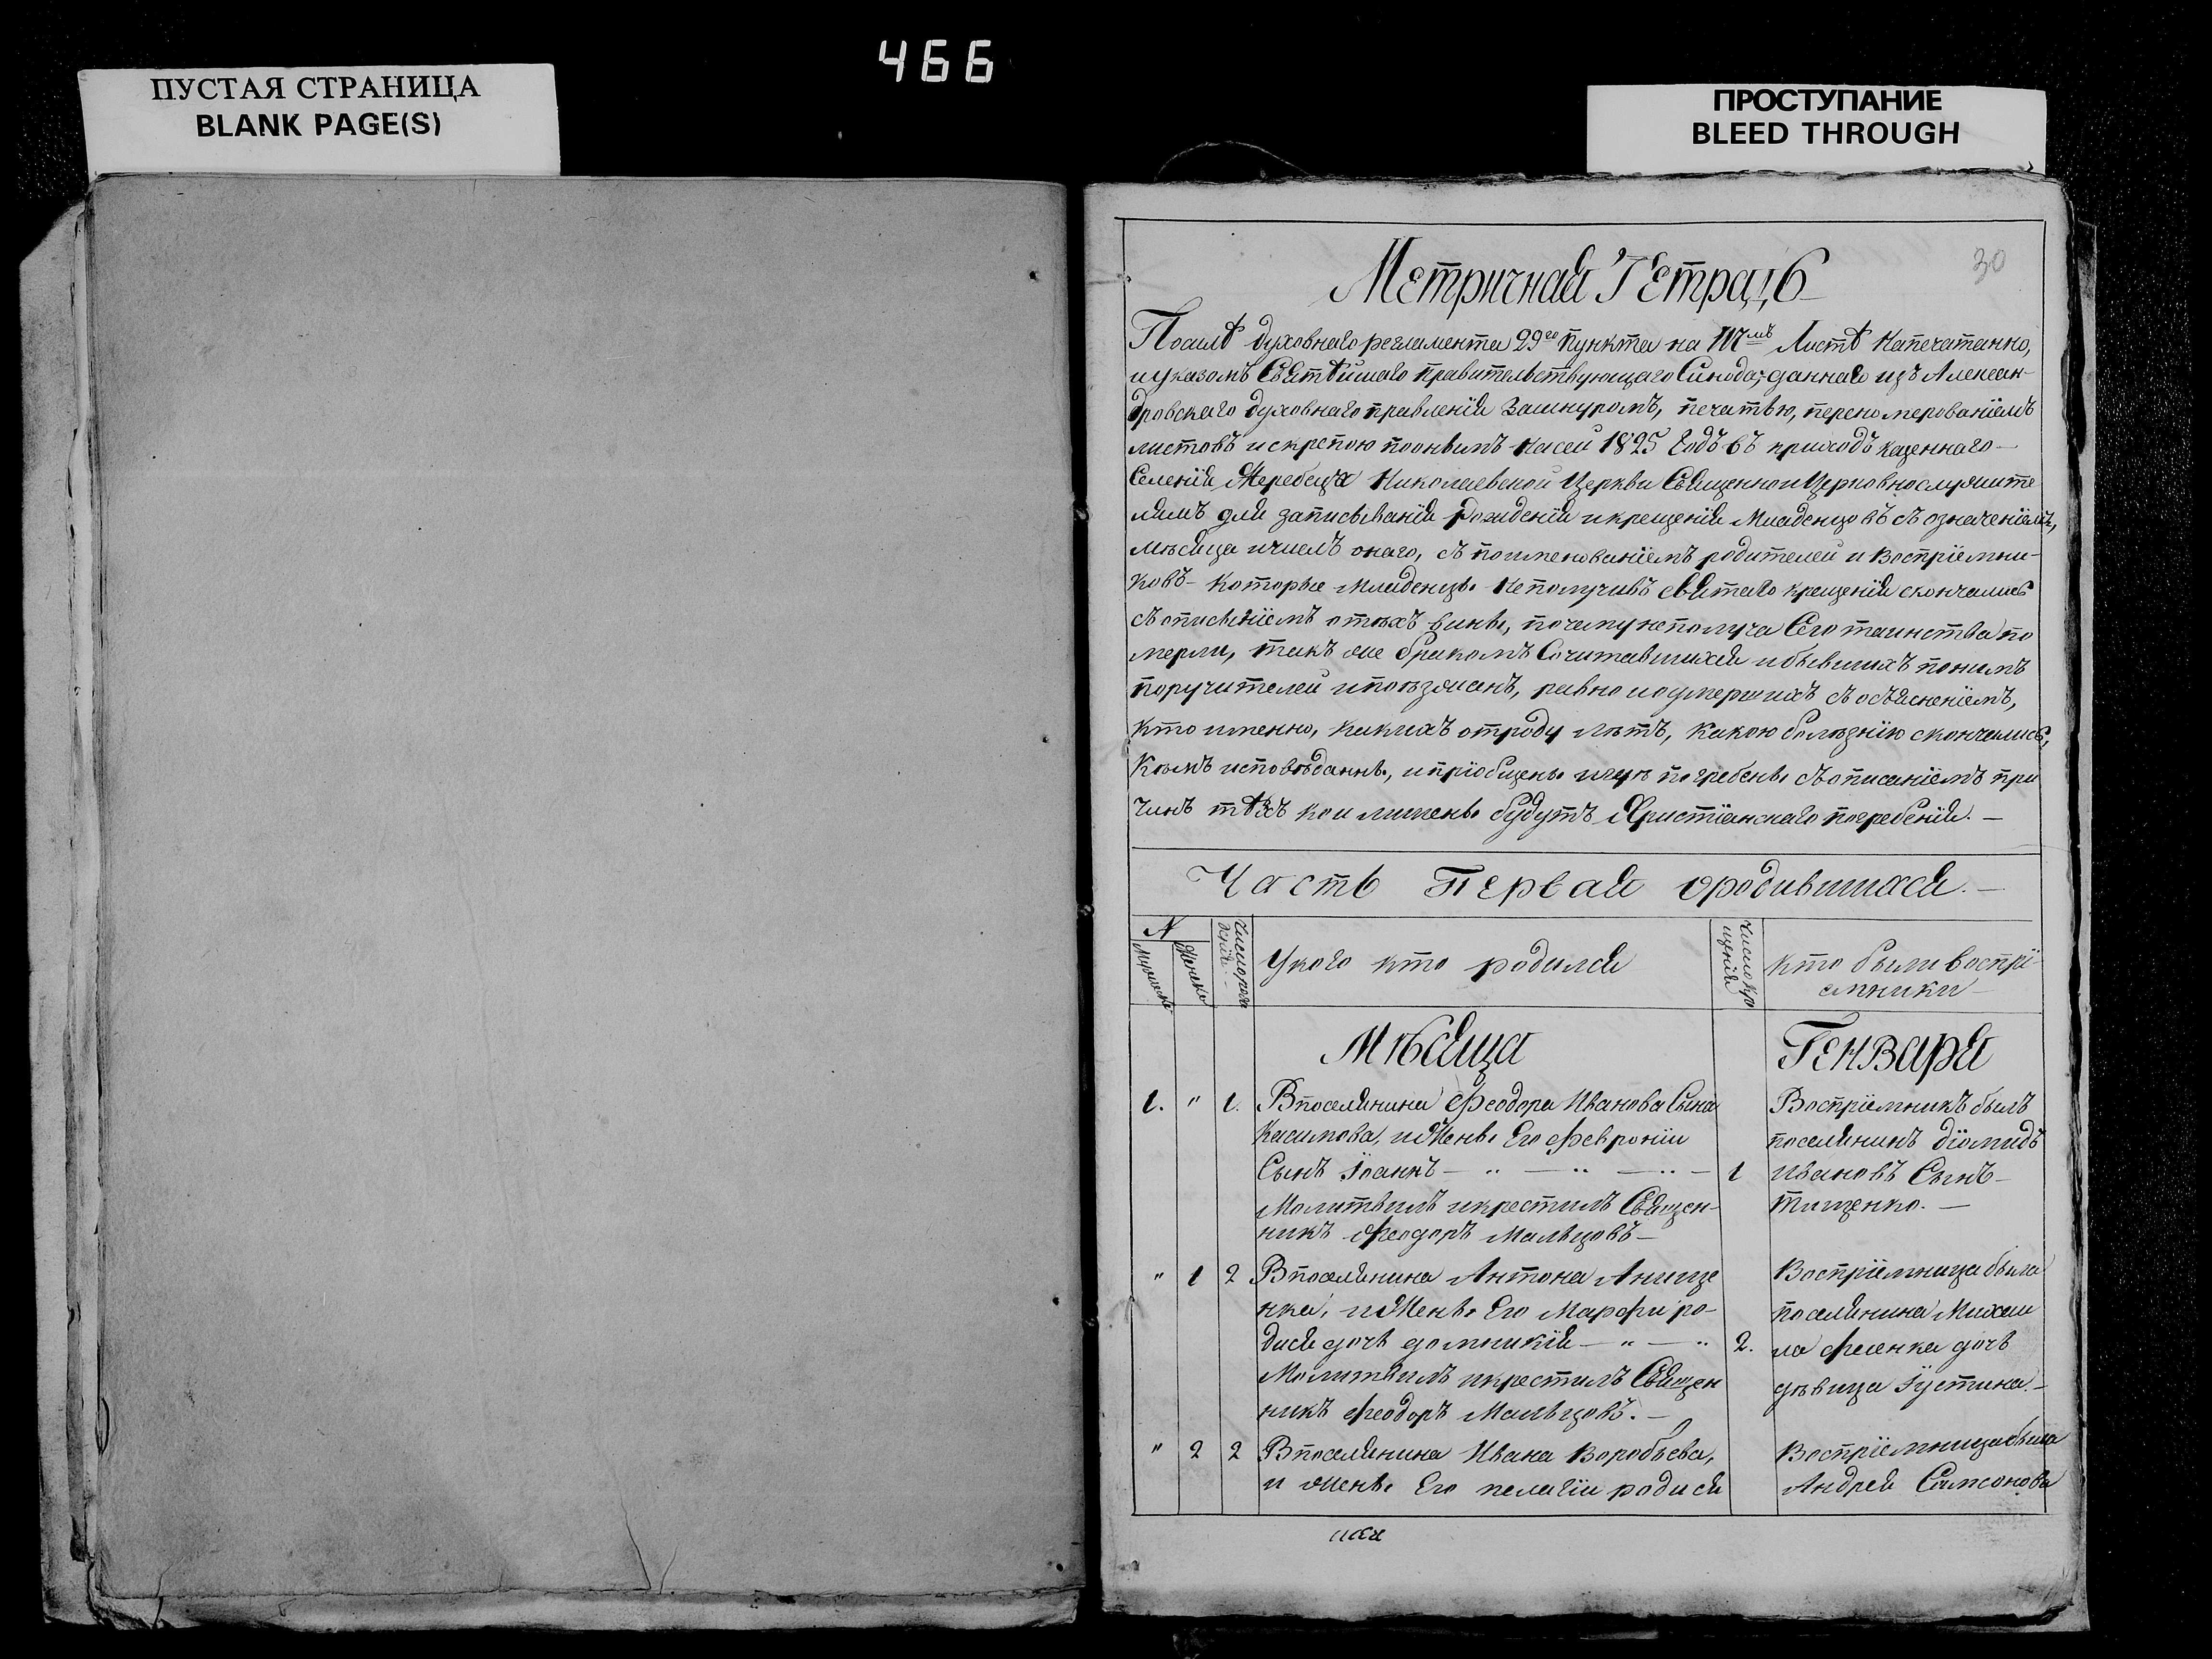 466
ПУСТАЯ СТРАНИЦА
BLANK PAGE(S)
ПРОСТУПАНИЕ
BLEED THROUGH
30
Метричная Тетрадь
Посилѣ духовнаго регламента 29го пункта на листѣ напечатанно,
иуказомъ Святѣйшаго правительствующаго Синода, данная изъ Алексан-
дровскаго духовнаго правленія зашнуромъ, печатью, переномерованіемъ
листовъ искрепою поонымъ насей 1825 годъ въ приходъ казеннаго
Селенія Жеребеца Николаевской Церкви Священно и Церковнослужите
лямъ для записыванія рожденія икрещенія Младенцовъ съ означеніемъ,
мѣсяца ичиселъ онаго, съ поименованіемъ родителей и воспріемни-
ковъ- которые младенцы неполучивъ святаго крещенія скончались
съ описаніемъ отѣхъ вины, почему неполуча Сего таинства по
мерли, такъ же бракомъ Сочитавшихся ибывшихъ понимъ
поручителей ипоѣзжанъ, равно иоумершихъ съ объясненіемъ,
кто именно, какихъ отроду лѣтъ, какою болѣзнію скончались,
кѣмъ исповѣданны, ипріобщены игдѣ погребены съ описаніемъ при
чинъ тѣхъ кои лишены будутъ Христіанскаго погребенія. —
Часть Первая ородившихся. —
N
Мужеска
Женска
Число рож
денія
Укого кто родился
Число кре
щенія
кто были воспрі-
емники
Мѣсяца
Генваря
1. " 1. Впоселянина Феодора Иванова Сына
Касимова, иЖены Его Февроніи
Сынъ Іоаннъ — " — " — " — 1
Молитвилъ икрестилъ Священ-
никъ Феодоръ Мальцовъ —
Воспріемникъ былъ
поселянинъ Діомидъ
Ивановъ Сынъ —
Тищенко. —
" 1 2 Впоселянина Антона Анище
нка, иЖены Его Марфи ро-
дися дочь домникія — " — " 2.
Молитвилъ икрестилъ Священ
никъ Феодоръ Мальцовъ. —
Воспріемница была
поселянина Михаи
ла Фсенка дочь
дѣвица Іустина. —
" 2 2 Впоселянина Ивана Воробьева,
и жены Его пелагіи родися
Воспріемница была
Андрея Самсонова